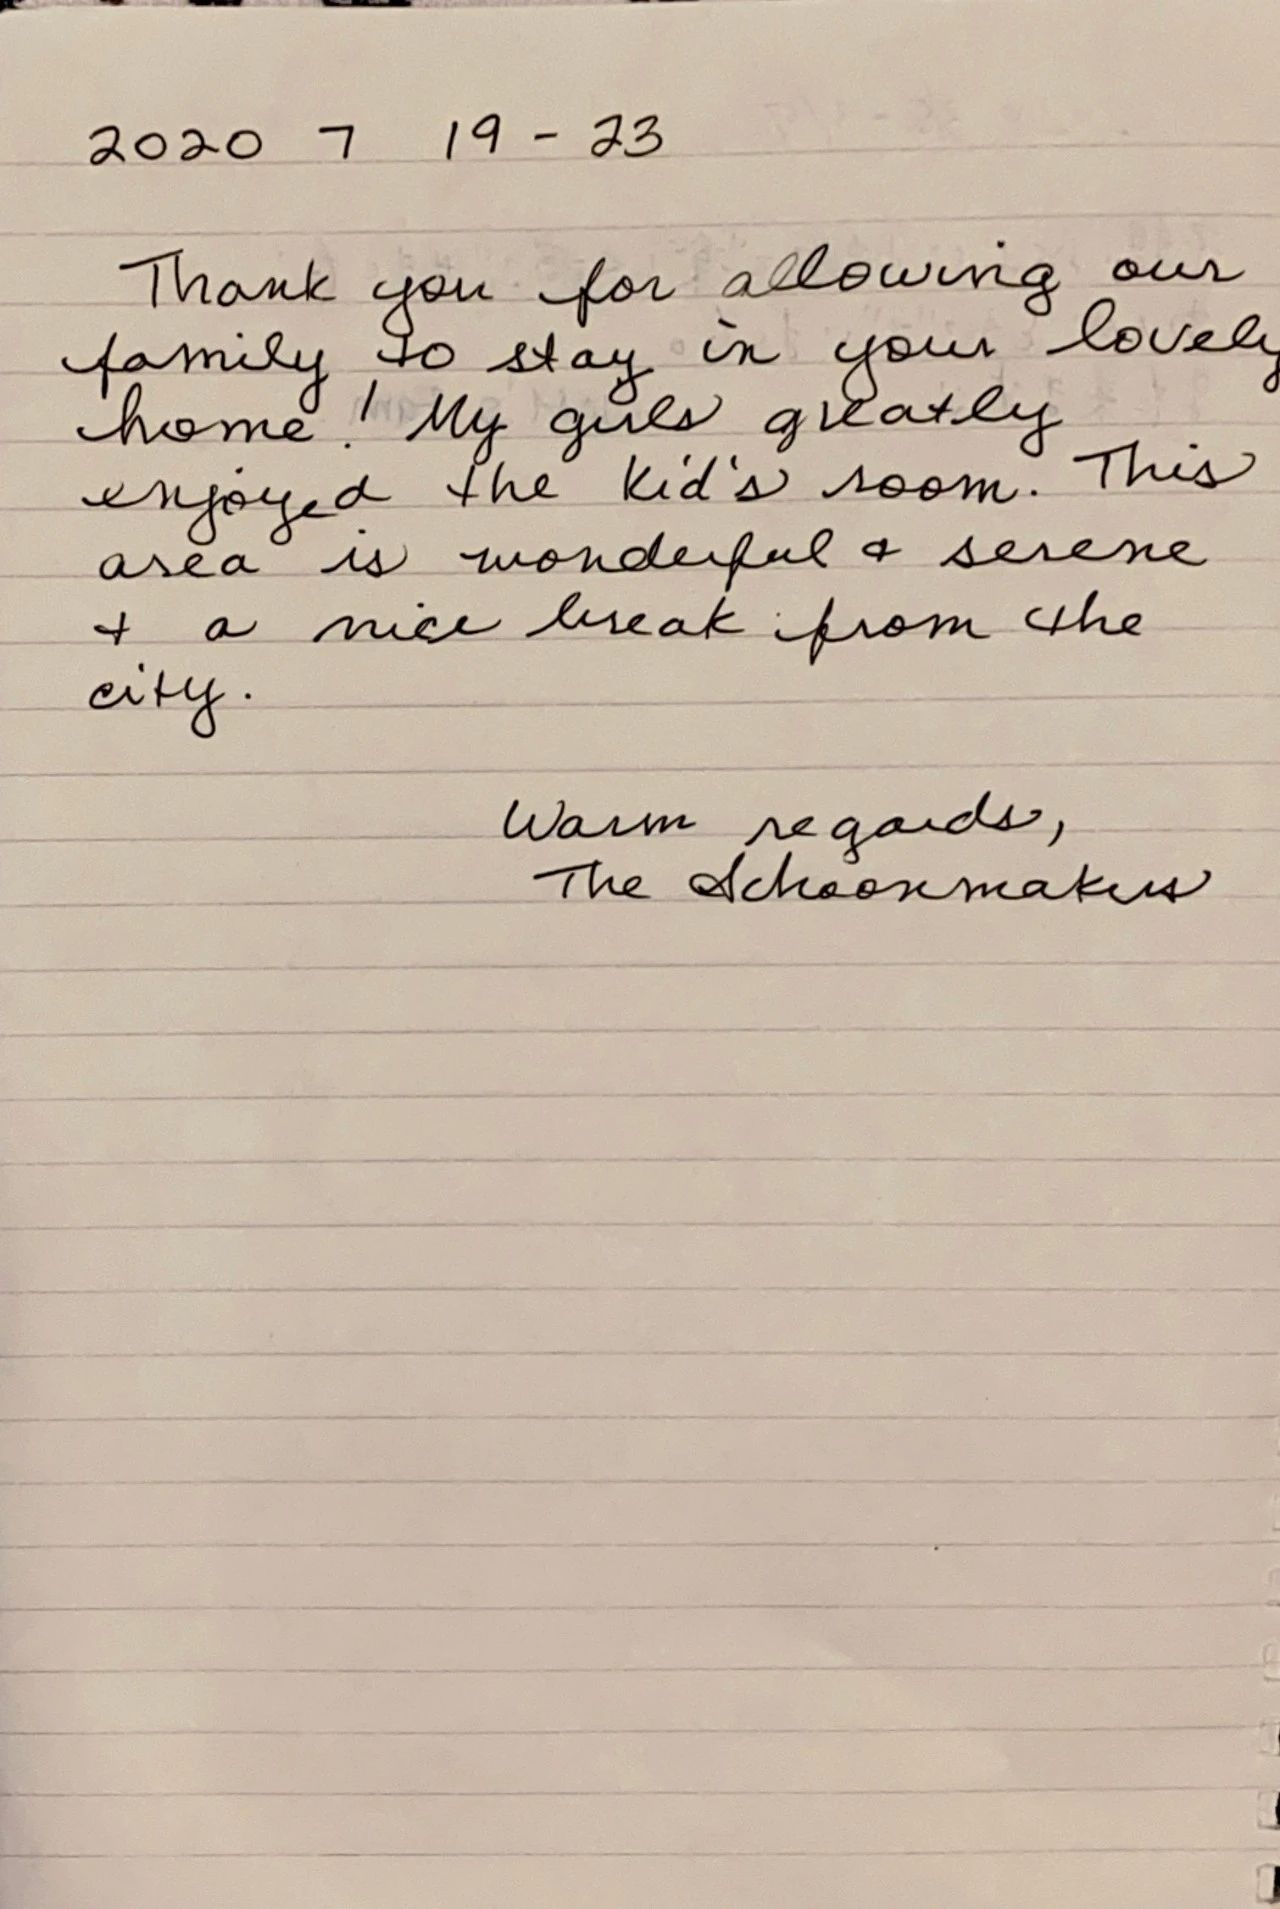 2020 7 19 - 23
Thank you for allowing our
family to stay in your lovely
home! My girls greatly
enjoyed the kid's room. This
area is wonderful & serene
+ a nice break from the
city.
Warm regards,
The Schoonmakers